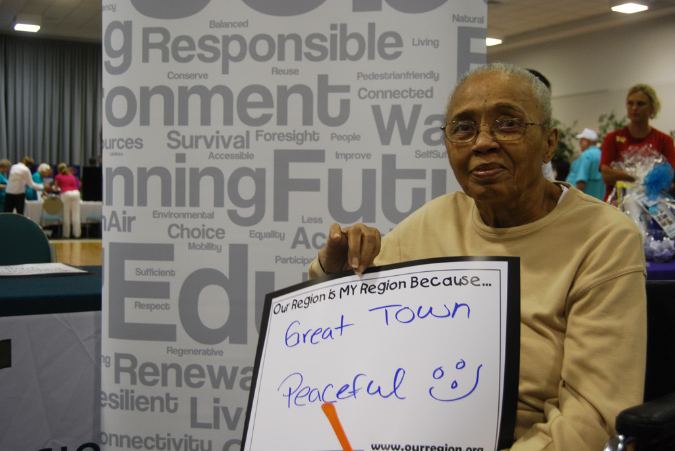 Balanced
Natural
g Responsible
Living
Conserve
Reuse
Pedestrianfriendly
onment
Connected
Wa
ources
Survival
Foresight
People
Accessible
Improve
SelfSuf
nningFutu
nAir
Environmental
Less
Choice
Equality
Ac
Mobility
Participa
Sufficient
Edu
Respect
Regenerative
Renewa
esilient
Livi
onnectivity
Our Region is MY Region Because...
Great Town
Peaceful
www.ourregion.org